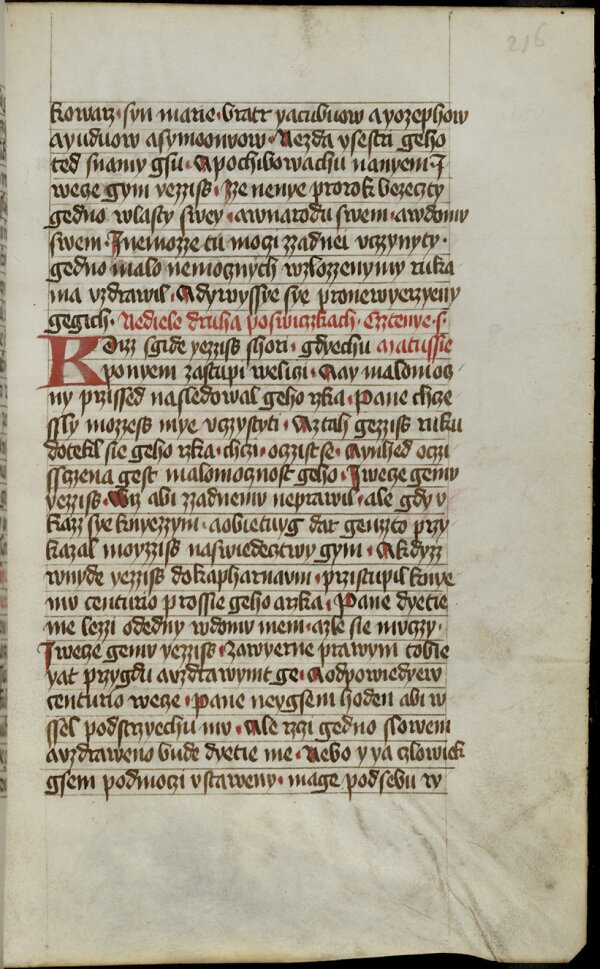 216
kowarz · syn marie · bratr yacubuow a yozephow
a yuduow a symoonuow · Aezda vsestri geho
ted snamy gsu · Apochibowachu nanyem · I
wecze gym yezziss · Ize nenye prorok bezeczty
gedno wlasty swey · awnarodu swem · awdomu
swem · Inemozze tu moczi zzadnei vczynyty ·
gedno malo nemocznych wzlozzenymy ruka
ma vzdrawil · Adywyssye sye pronewyerzyeny
gegich · Nediele druha poswiczkach · Cztenye · s ·
Kdizz sgide yezziss shori · gdyechu Matussie
ponyem zastupi welici · Aay malomocz
ny przissed nasledowal geho rzka · Pane chcze
ssly mozzess mye vczystyti · Aztah gezziss ruku
dotekl sie geho rzka · chczi · oczist se · Aynhed oczi
ssczena gest malomocznost geho · Iwecze gemu
yezziss · Wiz abi zzadnemu neprawil · ale gdy v
kazz sye knyezzym · aobietuyg dar genzto przy
kazal moyzziss naswiedecztwy gym · Akdyzz
wnyde yezziss dokapharnaum · przistupil knye
mu centurio prossie geho arzka · Pane dyetie
me lezzi odedny wdomu mem · azle sie muczy ·
Iwecze gemu yezziss · Zawyerne prawym tobie
yat przygdu avzdrawymt ge · Aodpowiedyew
centurio wecze · Pane neygsem hoden abi w
ssel podstrzyechu mu · Ale rzczi gedno slowem
avzdraweno bude dyetie me · Nebo y ya czlowiek
gsem podmoczi vstaweny · mage podsebu ry